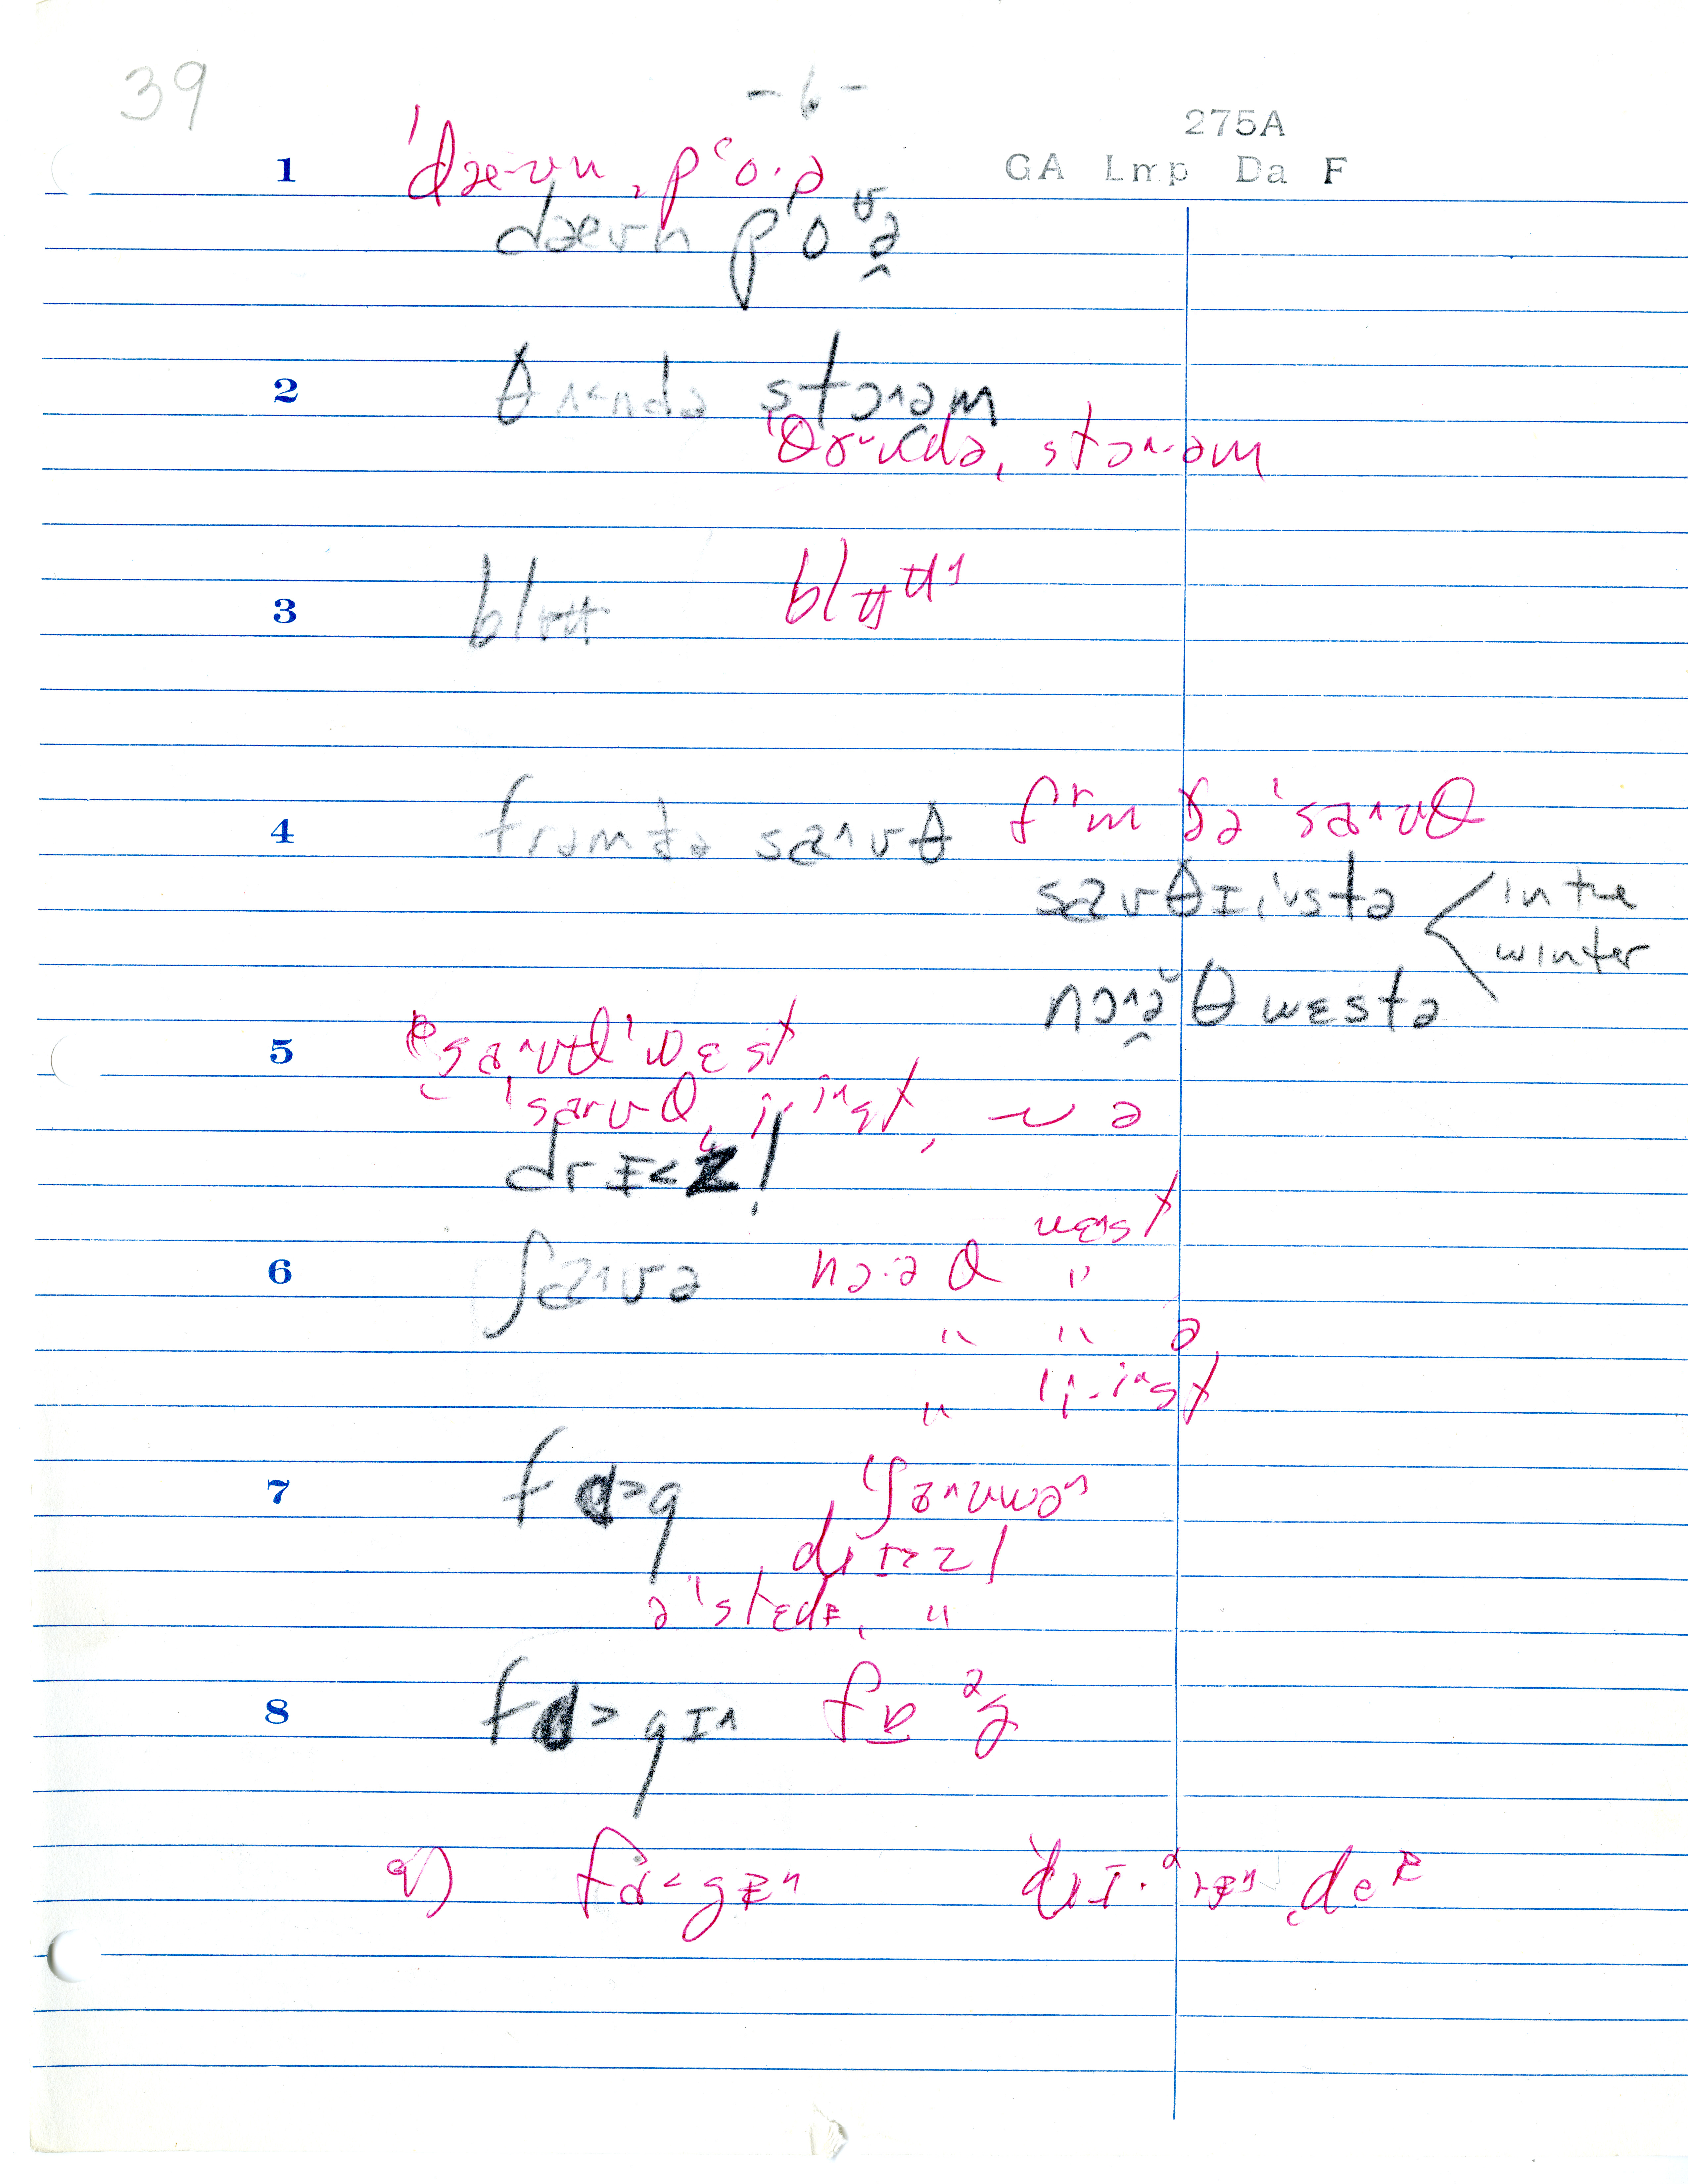 39
- 6 -
275A
GA Lmp Da F
1 ˈdæ-ʊn ˌpʻo·ə
dæʊn pʻoᶷə̯
2 θʌ˂ndə stɔ˄əm
stɔ˄·əm
3 blʉʉ blʉʉ˄
4 frəmðə sa˄ʊθ fʳm ðə ˈsa˄ʊθ
saʊθɪi˅stə in the
winter
nɔ˄ə̯̆θ wɛstə
5 sa˄ʊθˈwɛst
ˈsaʊθˌi·i˄st, ~ ə
drɪ˂zl̩
6 ʃa˄ʊə nɔ·ə θ wɛ˄st
"
" " ə
" ˈi·i˄st
7 fɑ˃g ˈʃa˄ʊwə˄
drɪ˃zl
əˈstɛdɪ, "
8 fɑ˃gɪ˄ fɒᵊg
9) fɑ˂gɪ˄ ˌde